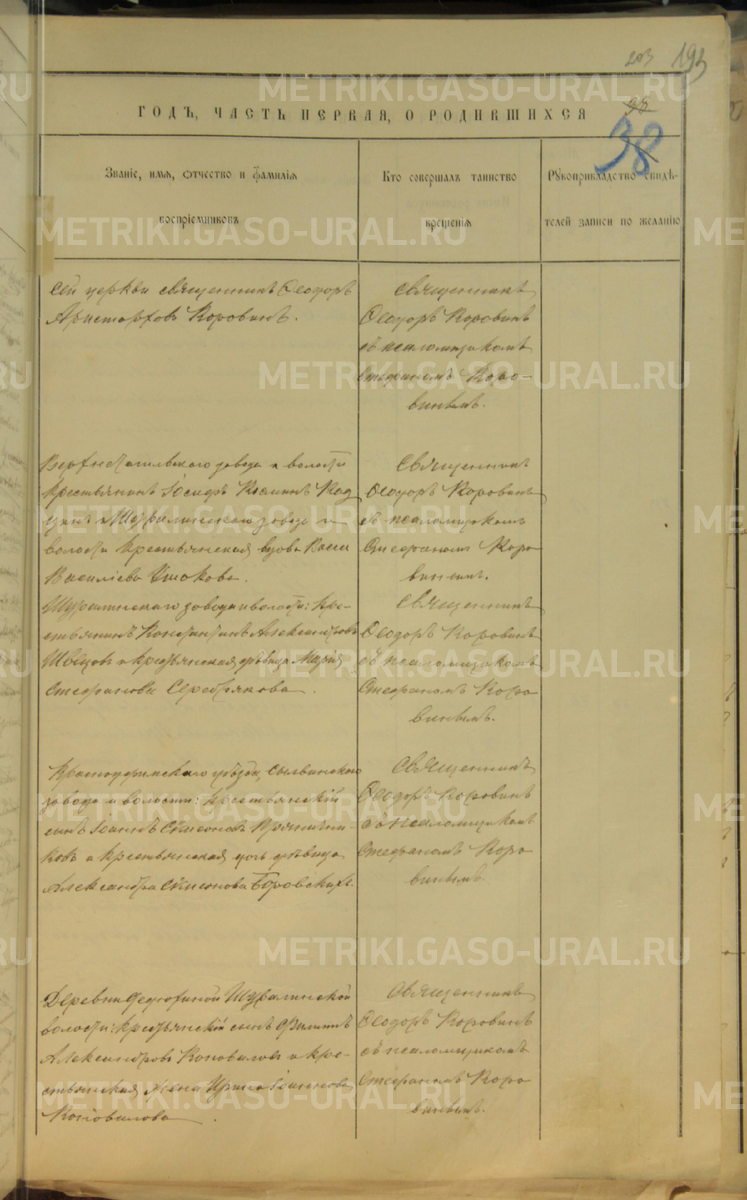 203 193
ГОДЪ, ЧАСТЬ ПЕРВАЯ, О РОДИВШИХСЯ
38
Званіе, имя, отчество и фамилія
воспріемниковъ
Кто совершалъ таинство
крещенія
Рукоприкладство свидѣ-
телей записи по желанію
Сей церкви священникъ Ѳеодоръ
Аристарховъ Коровинъ.
Священникъ
Ѳеодоръ Коровинъ
съ псаломщикомъ
Стефаномъ Коро-
винымъ.
Верхнетагильскаго завода и волости
крестьянинъ Іосифъ
и Шуралинскаго завода и
волости крестьянская вдова
Василіева Ушакова.
Священникъ
Ѳеодоръ Коровинъ
съ псаломщикомъ
Стефаномъ Коро
винымъ.
Шуралинскаго завода и волости: кре-
стьянинъ Константинъ Александровъ
Швецовъ и крестьянская дѣвица Марія
Стефанова Серебрякова.
Священникъ
Ѳеодоръ Коровинъ
съ псаломщикомъ
Стефаномъ Коро
винымъ.
Красноуфимскаго уѣзда, Сылвинскаго
завода и волости: крестьянскій
сынъ Іоаннъ Симеоновъ
и крестьянская дочь дѣвица
Александра Симонова Боровскихъ.
Священникъ
Ѳеодоръ Коровинъ
съ псаломщикомъ
Стефаномъ Коро
винымъ.
Деревни Федотиной Шуралинской
волости: крестьянскій сынъ Филиппъ
Александровъ Коноваловъ и кре-
стьянская жена Ирина Іоаннова
Коновалова.
Священникъ
Ѳеодоръ Коровинъ
съ псаломщикомъ
Стефаномъ Коро
винымъ.
METRIKI.GASO-URAL.RU
METRIKI.GASO-URAL.RU
METRIKI.GASO-URAL.RU
METRIKI.GASO-URAL.RU
METRIKI.GASO-URAL.RU
METRIKI.GASO-URAL.RU
METRIKI.GASO-URAL.RU
METRIKI.GASO-URAL.RU